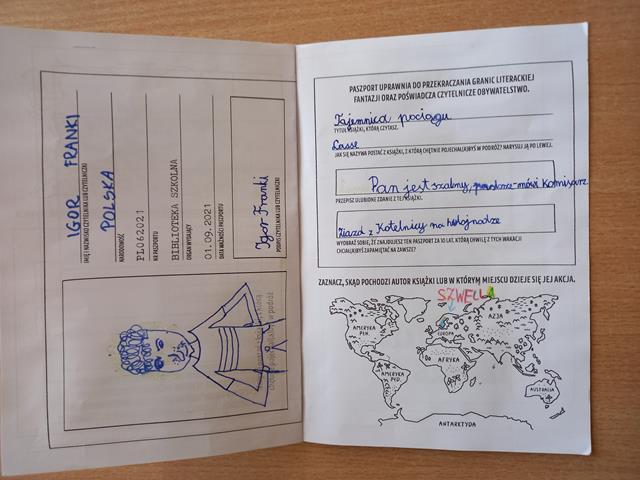 IGOR FRANKI
IMIĘ I NAZWISKO CZYTELNIKA LUB CZYTELNICZKI
POLSKA
NARODOWOŚĆ
PL062021
NR PASZPORTU
BIBLIOTEKA SZKOLNA
ORGAN WYDAJĄCY
01.09.2021
DATA WAŻNOŚCI PASZPORTU
Igor Franki
PODPIS CZYTELNIKA LUB CZYTELNICZKI
PASZPORT UPRAWNIA DO PRZEKRACZANIA GRANIC LITERACKIEJ
FANTAZJI ORAZ POŚWIADCZA CZYTELNICZE OBYWATELSTWO.
Tajemnica pociągu
TYTUŁ KSIĄŻKI, KTÓRĄ CZYTASZ.
Lasse
JAK SIĘ NAZYWA POSTAĆ Z KSIĄŻKI, Z KTÓRĄ CHĘTNIE POJECHAŁ(A)BYŚ W PODRÓŻ? NARYSUJ JĄ PO LEWEJ.
Pan jest szalony, mówi Komisarz.
PRZEPISZ ULUBIONE ZDANIE Z TEJ KSIĄŻKI.
Zjazd z Kotelnicy na
WYOBRAŹ SOBIE, ŻE ZNAJDUJESZ TEN PASZPORT ZA 10 LAT. KTÓRĄ CHWILĘ Z TYCH WAKACJI
CHCIAŁ(A)BYŚ ZAPAMIĘTAĆ NA ZAWSZE?
ZAZNACZ, SKĄD POCHODZI AUTOR KSIĄŻKI LUB W KTÓRYM MIEJSCU DZIEJE SIĘ JEJ AKCJA.
AMERYKA
PŁN.
EUROPA
AZJA
AFRYKA
AMERYKA
PŁD.
AUSTRALIA
ANTARKTYDA